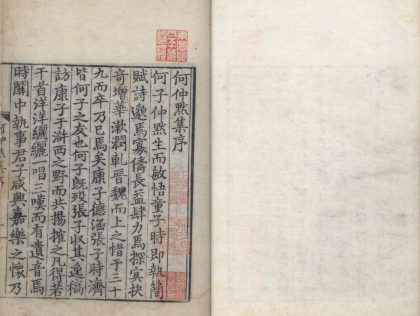 何仲默集序
何子仲默生而敏悟童子時即執簡
賦詩邈焉寡儔長益肆力焉探冥抉
奇增華漱潤軋晉魏而上之惜于三十
九而卒乃已焉矣康子德涵張子時濟
皆何子之友也何子既殁張子收其逸稿
訪康子于滸西之野而共揚搉之凡得若
干首洋洋纚纚唱三嘆而有遺音焉
時關中執事君子咸興嘉樂之懷乃